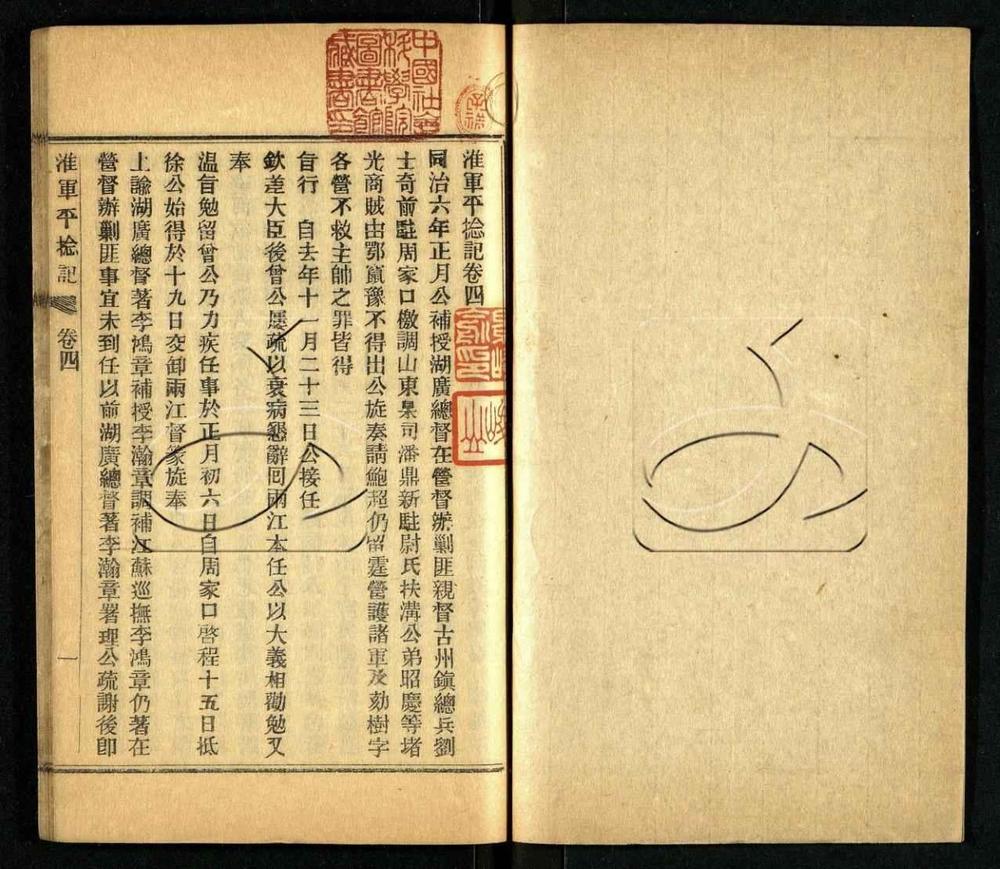 淮軍平捻記卷四
同治六年正月公補授湖廣總督在營督辦剿匪親督古州鎮總兵劉
士奇前駐周家口檄調山東臬司潘鼎新駐尉氏扶溝公弟昭慶等堵
光商賊由鄂竄豫不得出公旋奏請鮑超仍留霆營護諸軍及劾樹字
各營不救主帥之罪皆得
旨行　自去年十一月二十三日公接任
欽差大臣後曾公屢疏以衰病懇辭回兩江本任公以大義相勸勉又
奉
溫旨勉留曾公乃力疾任事於正月初六日自周家口啓程十五日抵
徐公始得於十九日交卸兩江督篆旋奉
上諭湖廣總督著李鴻章補授李瀚章調補江蘇巡撫李鴻章仍著在
營督辦剿匪事宜未到任以前湖廣總督著李瀚章署理公疏謝後卽
淮軍平捻記　卷四　一
中國社會
科學院
圖書館
藏書印